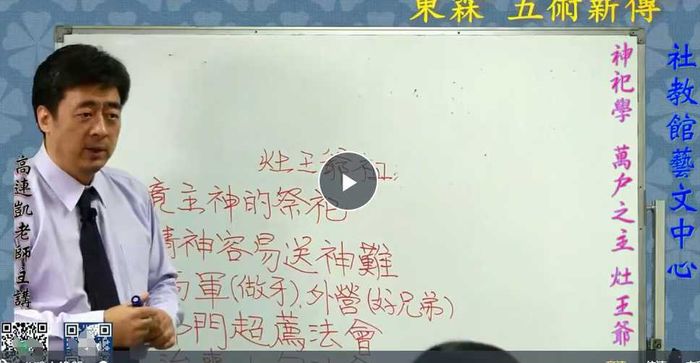 東森 五術新傳
社教館藝文中心
神祀學 萬戶之主 灶王爺
高連凱老師主講
灶王爺
竟主神的祭祀
請神容易送神難
軍(做牙).外營(好兄弟)
門超薦法會